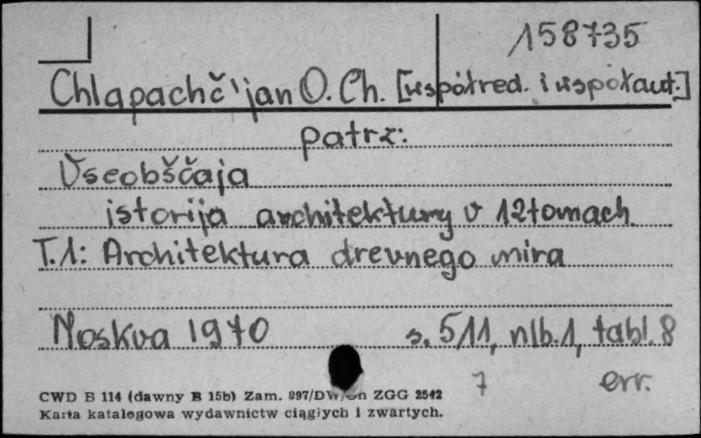 158735
Chlapachč'jan O. Ch. [współred. i współaut.]
patrz:
Vseobščaja
istorija architektury v 12 tomach
T.1: Architektura drevnego mira
Moskva 1970 s. 511, nlb. 1, tabl. 8
7 err.
CWD B 114 (dawny B 15b) Zam. 897/DW/ ZGG 2542
Karta katalogowa wydawnictw ciągłych i zwartych.